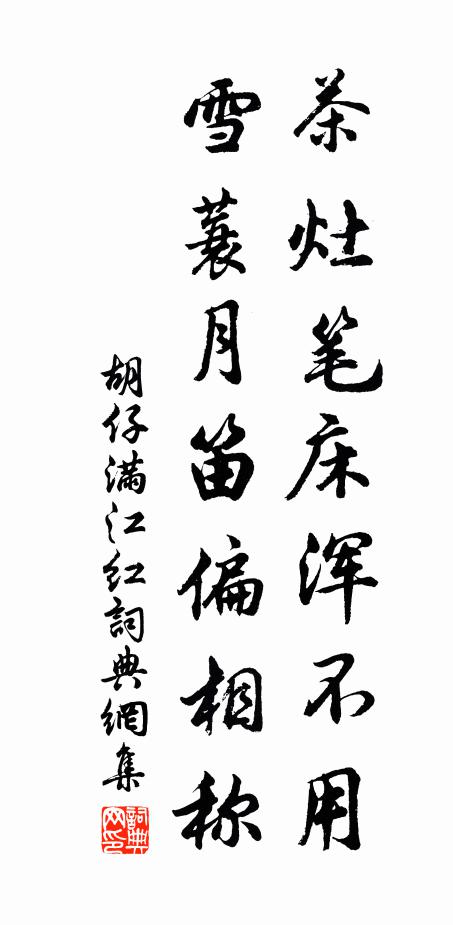 茶灶笔床浑不用
雪蓑月笛偏相称
胡仔满江红詞典網集
詞典网印